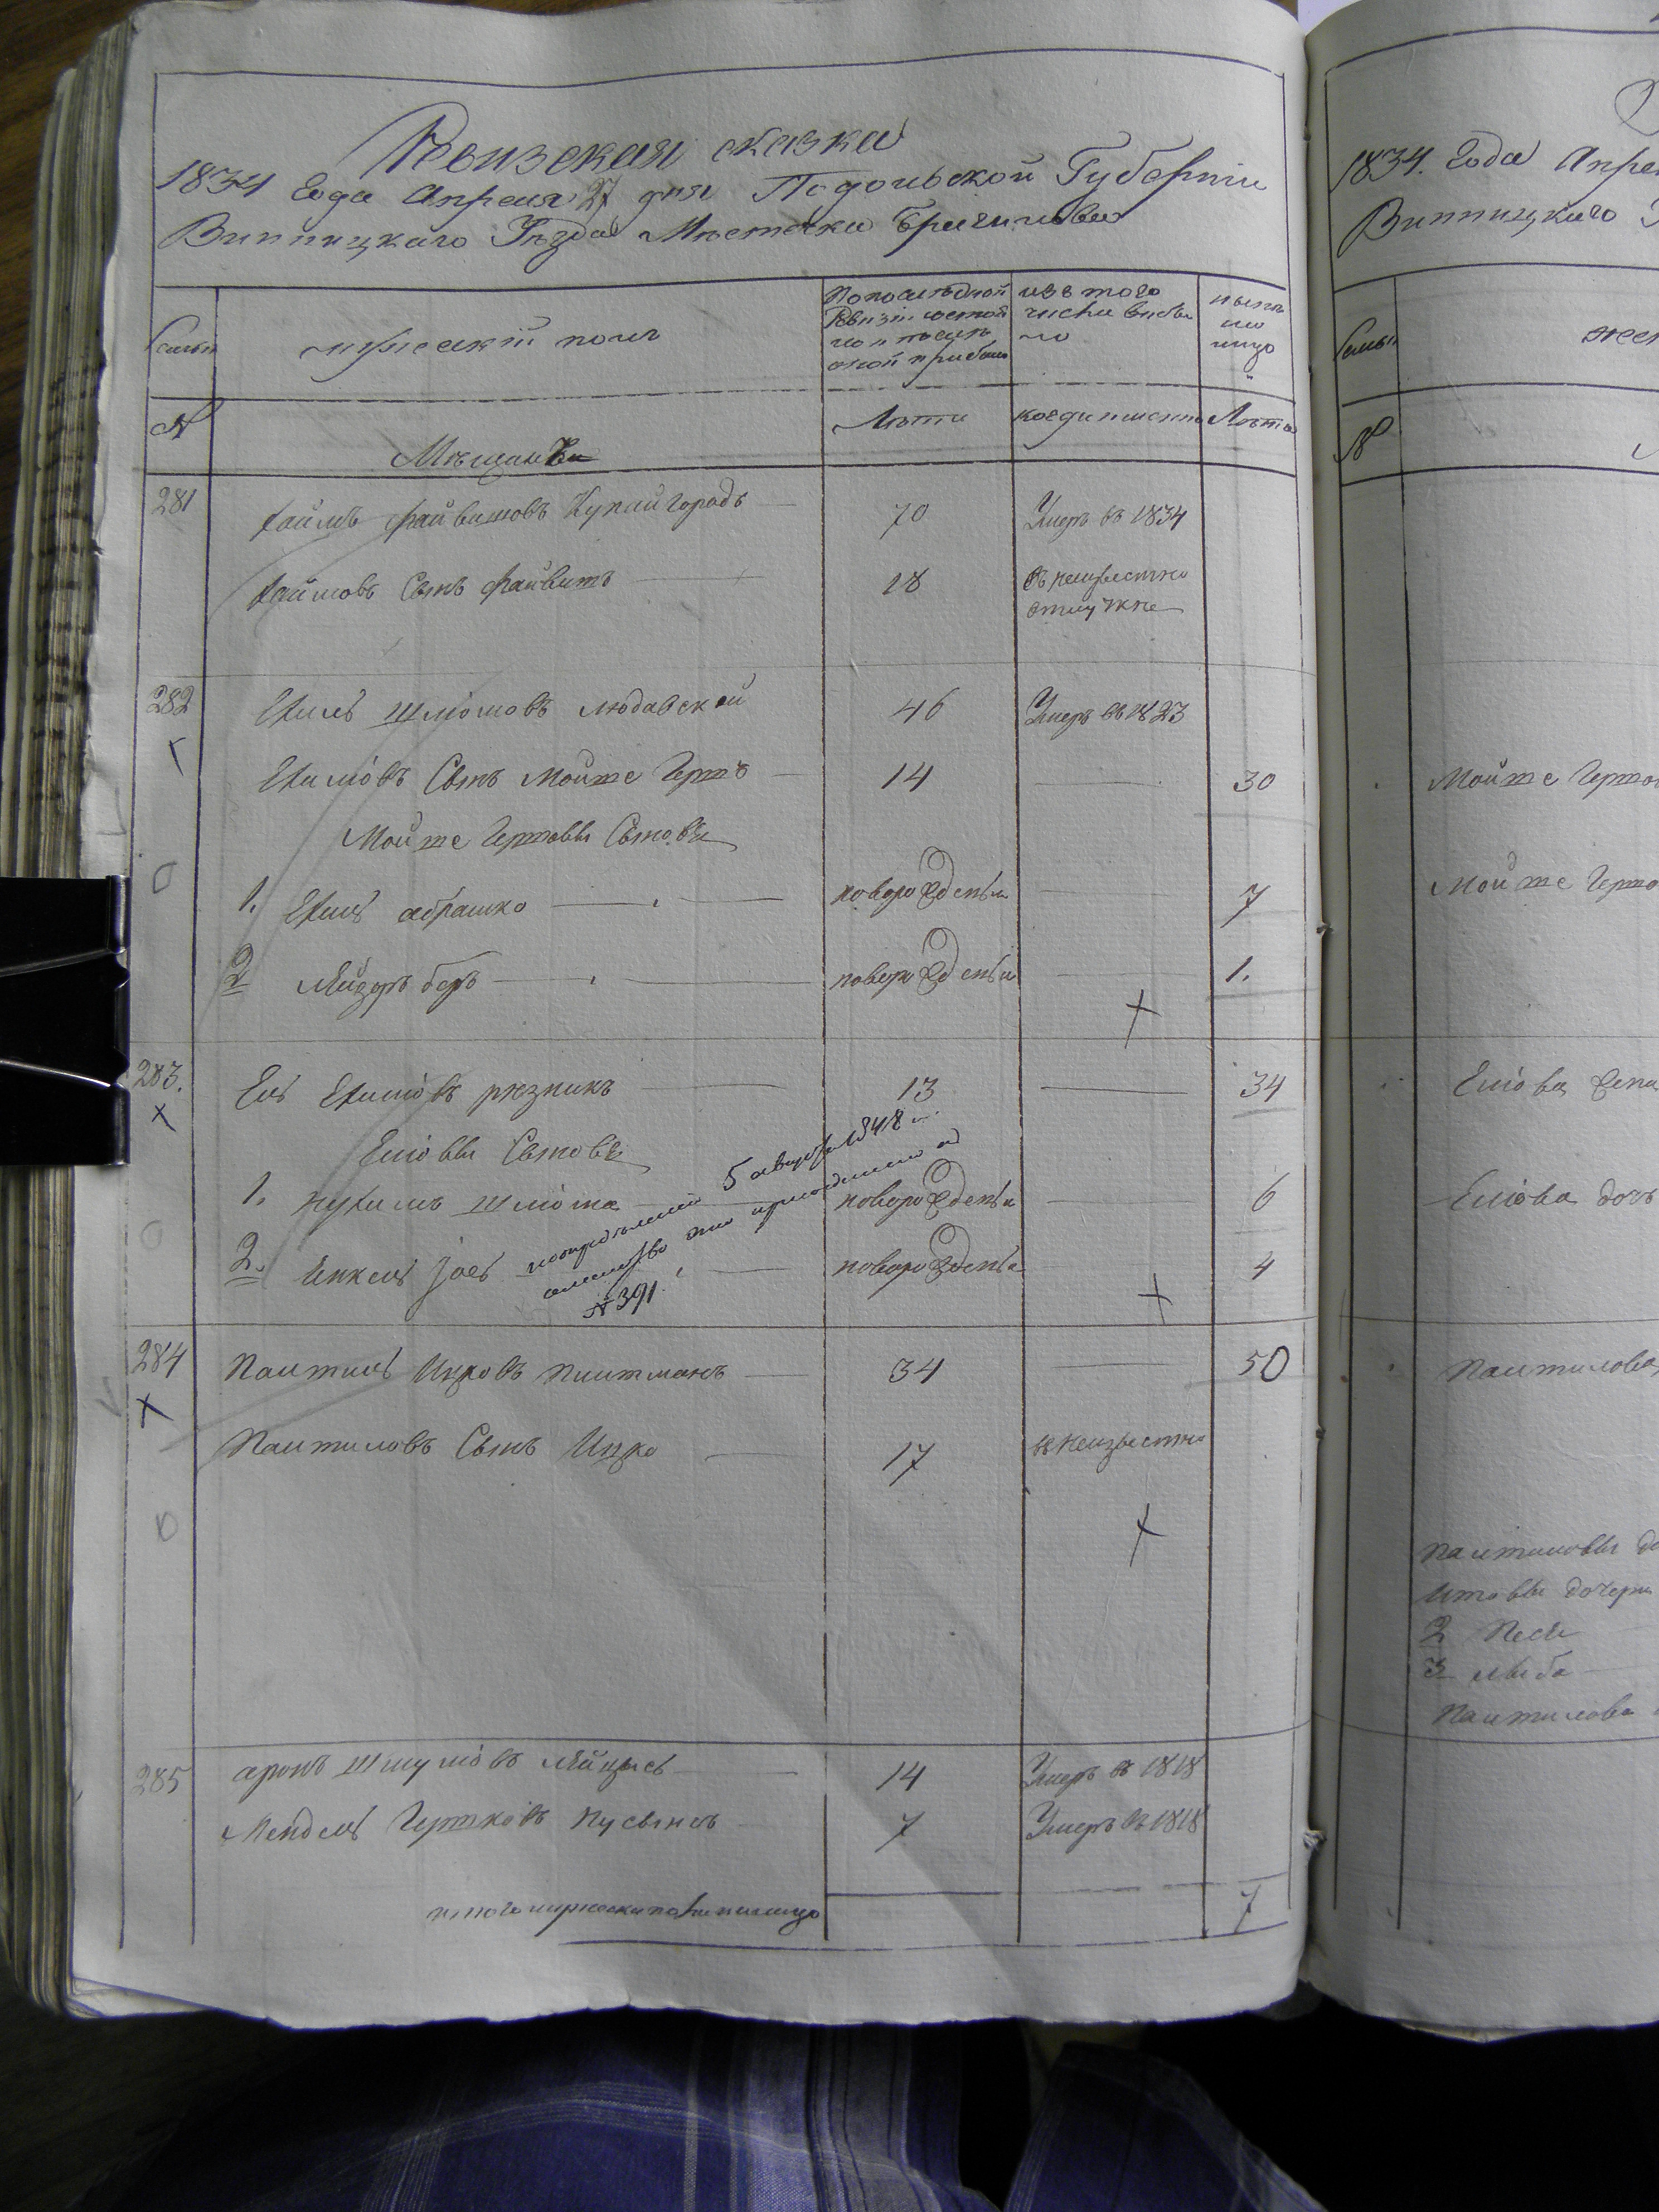 Ревизская сказка
1834 Года Апреля 27 дня Подольской Губернiи
Винницкаго Уѣзда Мѣстечка Браилова
Семьи
мужескiй полъ
По последней
Ревизiи состоя
ло и послѣ
оной прибыло
изъ того
числа выбы
ло
нынѣ
на
лицо
№
Мѣщанъ
Лѣта
когда именно
Лѣта
281
Хаимъ Файвишовъ Купайгородъ
70
Умеръ въ 1834
Хаимовъ Сынъ Файвишъ
18
въ неизвестно
отлучке
282
Ехиль Шлiомовъ Людавской
46
Умеръ въ 1823
Ехилiовъ Сынъ Мойше Гершъ
14
30
Мойше Гершовы Сыновья
1. Ехиль абрашко
новорожденъ
7
2 Лейзоръ беръ
новорожденъ
1.
283.
Ель Ехилiовъ резникъ
13
34
Елiовы Сыновья
1. Нухимъ Шлiома
новорожденъ
6
2. Янкель Iоель
новорожденъ
4
5 августа 1848
№ 391.
284
Палтиель Ицковъ Плитманъ
34
50
Палтиловъ Сынъ Ицко
17
в неизвестно
285
аронъ Шмулiовъ Лейцысъ
14
Умеръ въ 1818
Мендель Гершковъ Пусынъ
7
Умеръ въ 1818
итого мужеска пола на лицо
7
1834. Года Апре
Винницкаго
Семьи
жен
№
Мойше Гершо
Мойше Гершо
Елiова жена
Елiова дочь
Палтилова
Палтиловы до
Ицковы дочери
2 Песя
3 Лыба
Палтилова